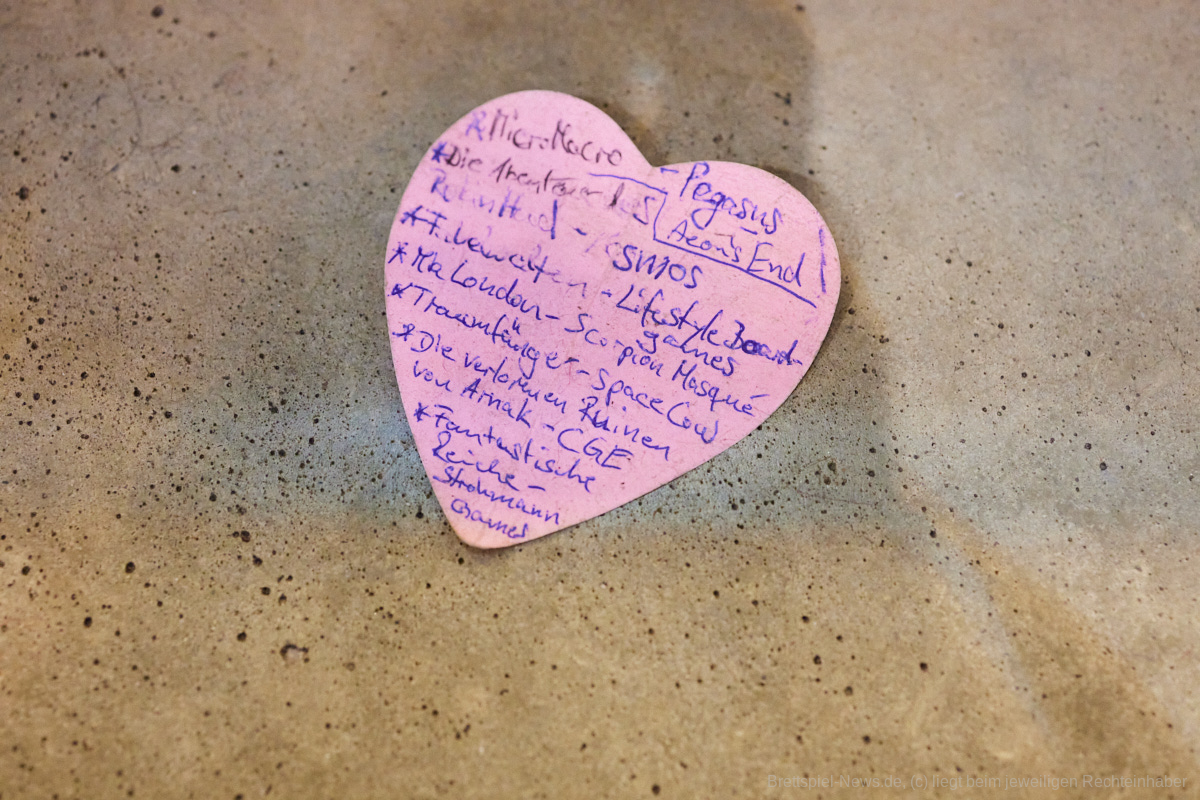 * MicroMacro - Pegasus
* Die Abenteuer des
Aeon's End
Robin Hood - Kosmos
* - Lifestyle Board-
games
* Mr London - Scorpion Masqué
* Traumfänger - Space Cow
* Die verlorenen Ruinen
von Arnak - CGE
* Fantastische
Reiche -
Strohmann
Games
Brettspiel-News.de, (c) liegt beim jeweiligen Rechteinhaber